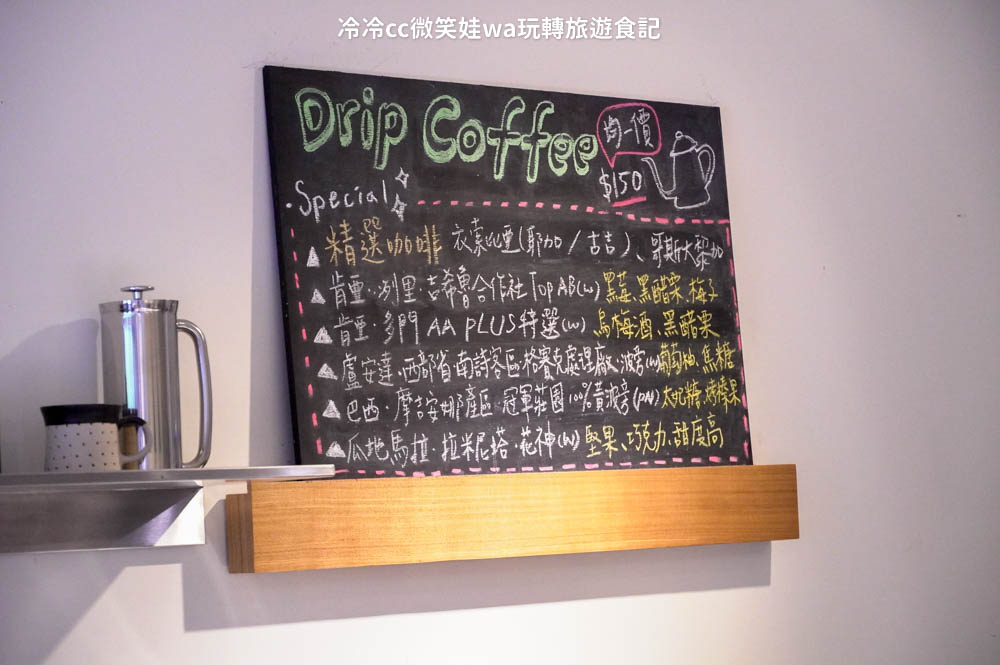 冷冷cc微笑娃wa玩轉旅遊食記
Drip Coffee
均一價
$150
·Special
精選咖啡 衣索比亞(耶加/古吉)、哥斯大黎加
肯亞·冽里·吉希魯合作社 Top AB(w) 黑莓、黑醋栗、梅子
肯亞·多門 AA PLUS特選(w) 烏梅酒、黑醋栗
盧安達·西部省·南詩客區·格賽克處理廠·波旁(w) 葡萄柚、焦糖
巴西·摩吉安娜產區·冠軍莊園 100%黃波旁(PN) 太妃糖、烤榛果
瓜地馬拉·拉米尼塔·花神(w) 堅果、巧克力、甜度高